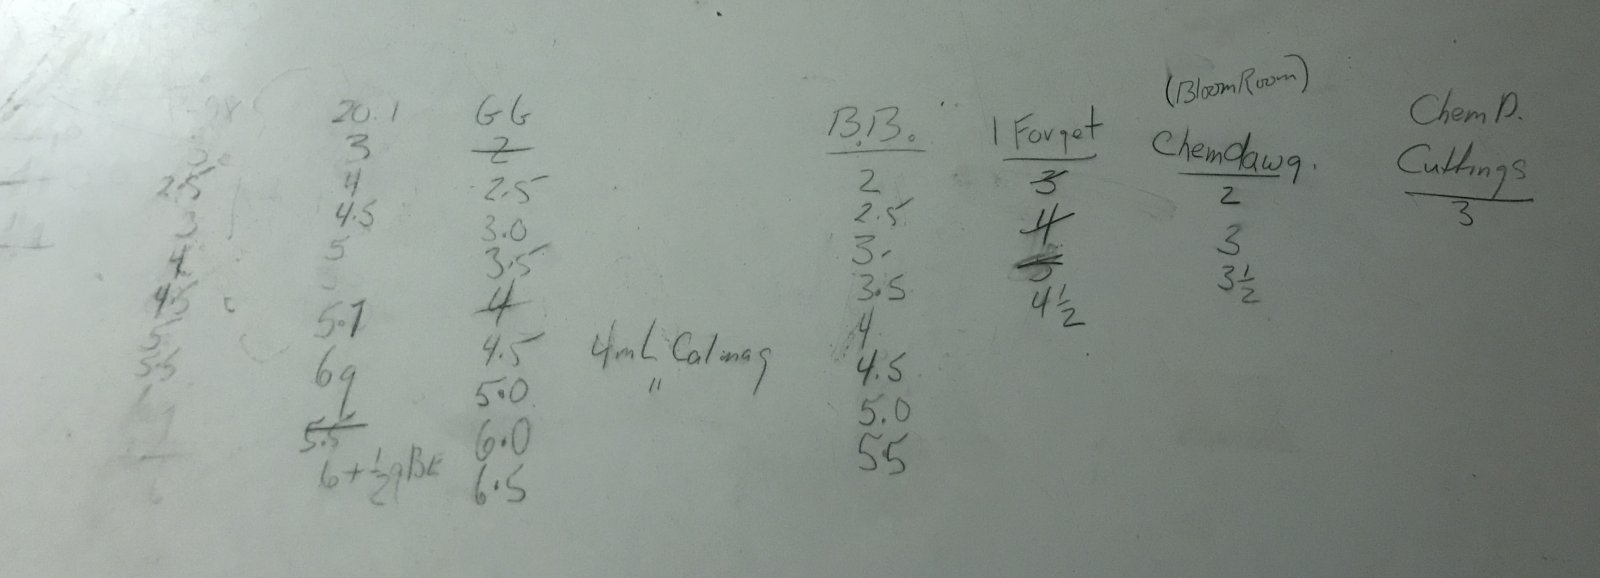 (Bloom Room)
20.1 GG B.B. 1 Forget Chemdawg. Chem D. Cuttings
3 2 2 3 2 3
2.5 4 2.5 2.5 4 3
3 4.5 3.0 3. 5 3 1/2
4 5 3.5 3.5 4 1/2
4.5 5.7 4 4
5 6g 4.5 4mL Calmag 4.5
5.5 5.5 5.0 " 5.0
6 + 1/2 g BE 6.0 5.5
6.5